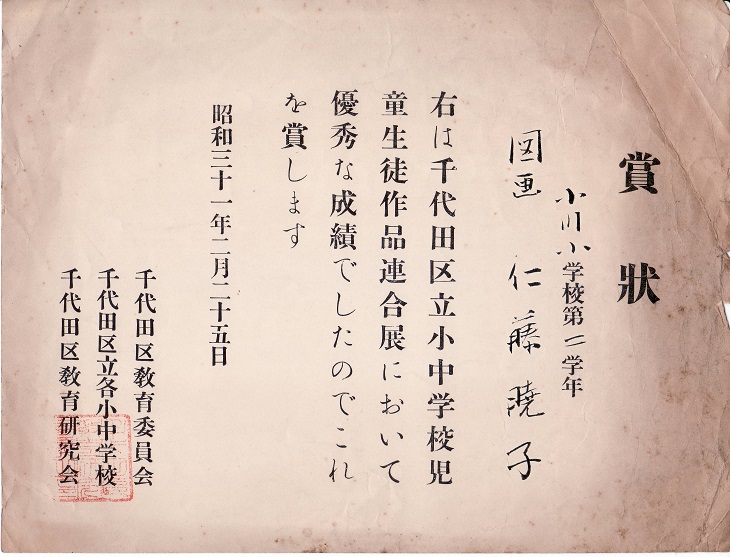 賞狀
小川小学校第二学年
図画 仁藤暁子
右は千代田区立小中学校児
童生徒作品連合展において
優秀な成績でしたのでこれ
を賞します
昭和三十一年二月二十五日
千代田区教育委員会
千代田区立各小中学校
千代田区教育研究会